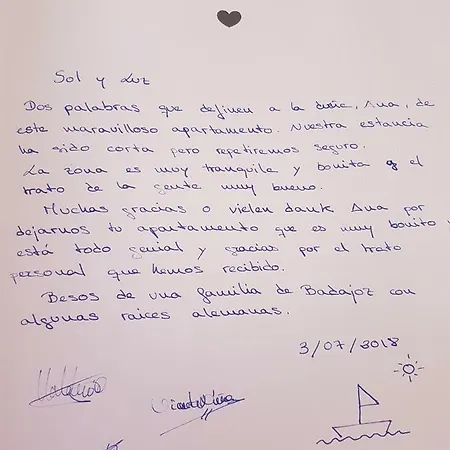 Sol y Luz
Dos palabras que definen a la dueña, Ana, de
este maravilloso apartamento. Nuestra estancia
ha sido corta pero repetiremos seguro.
La zona es muy tranquila y bonita y el
trato de la gente muy bueno.
Muchas gracias o vielen dank Ana por
dejarnos tu apartamento que es muy bonito y
está todo genial y gracias por el trato
personal que hemos recibido.
Besos de una familia de Badajoz con
algunas raices alemanas.
3/07/3018